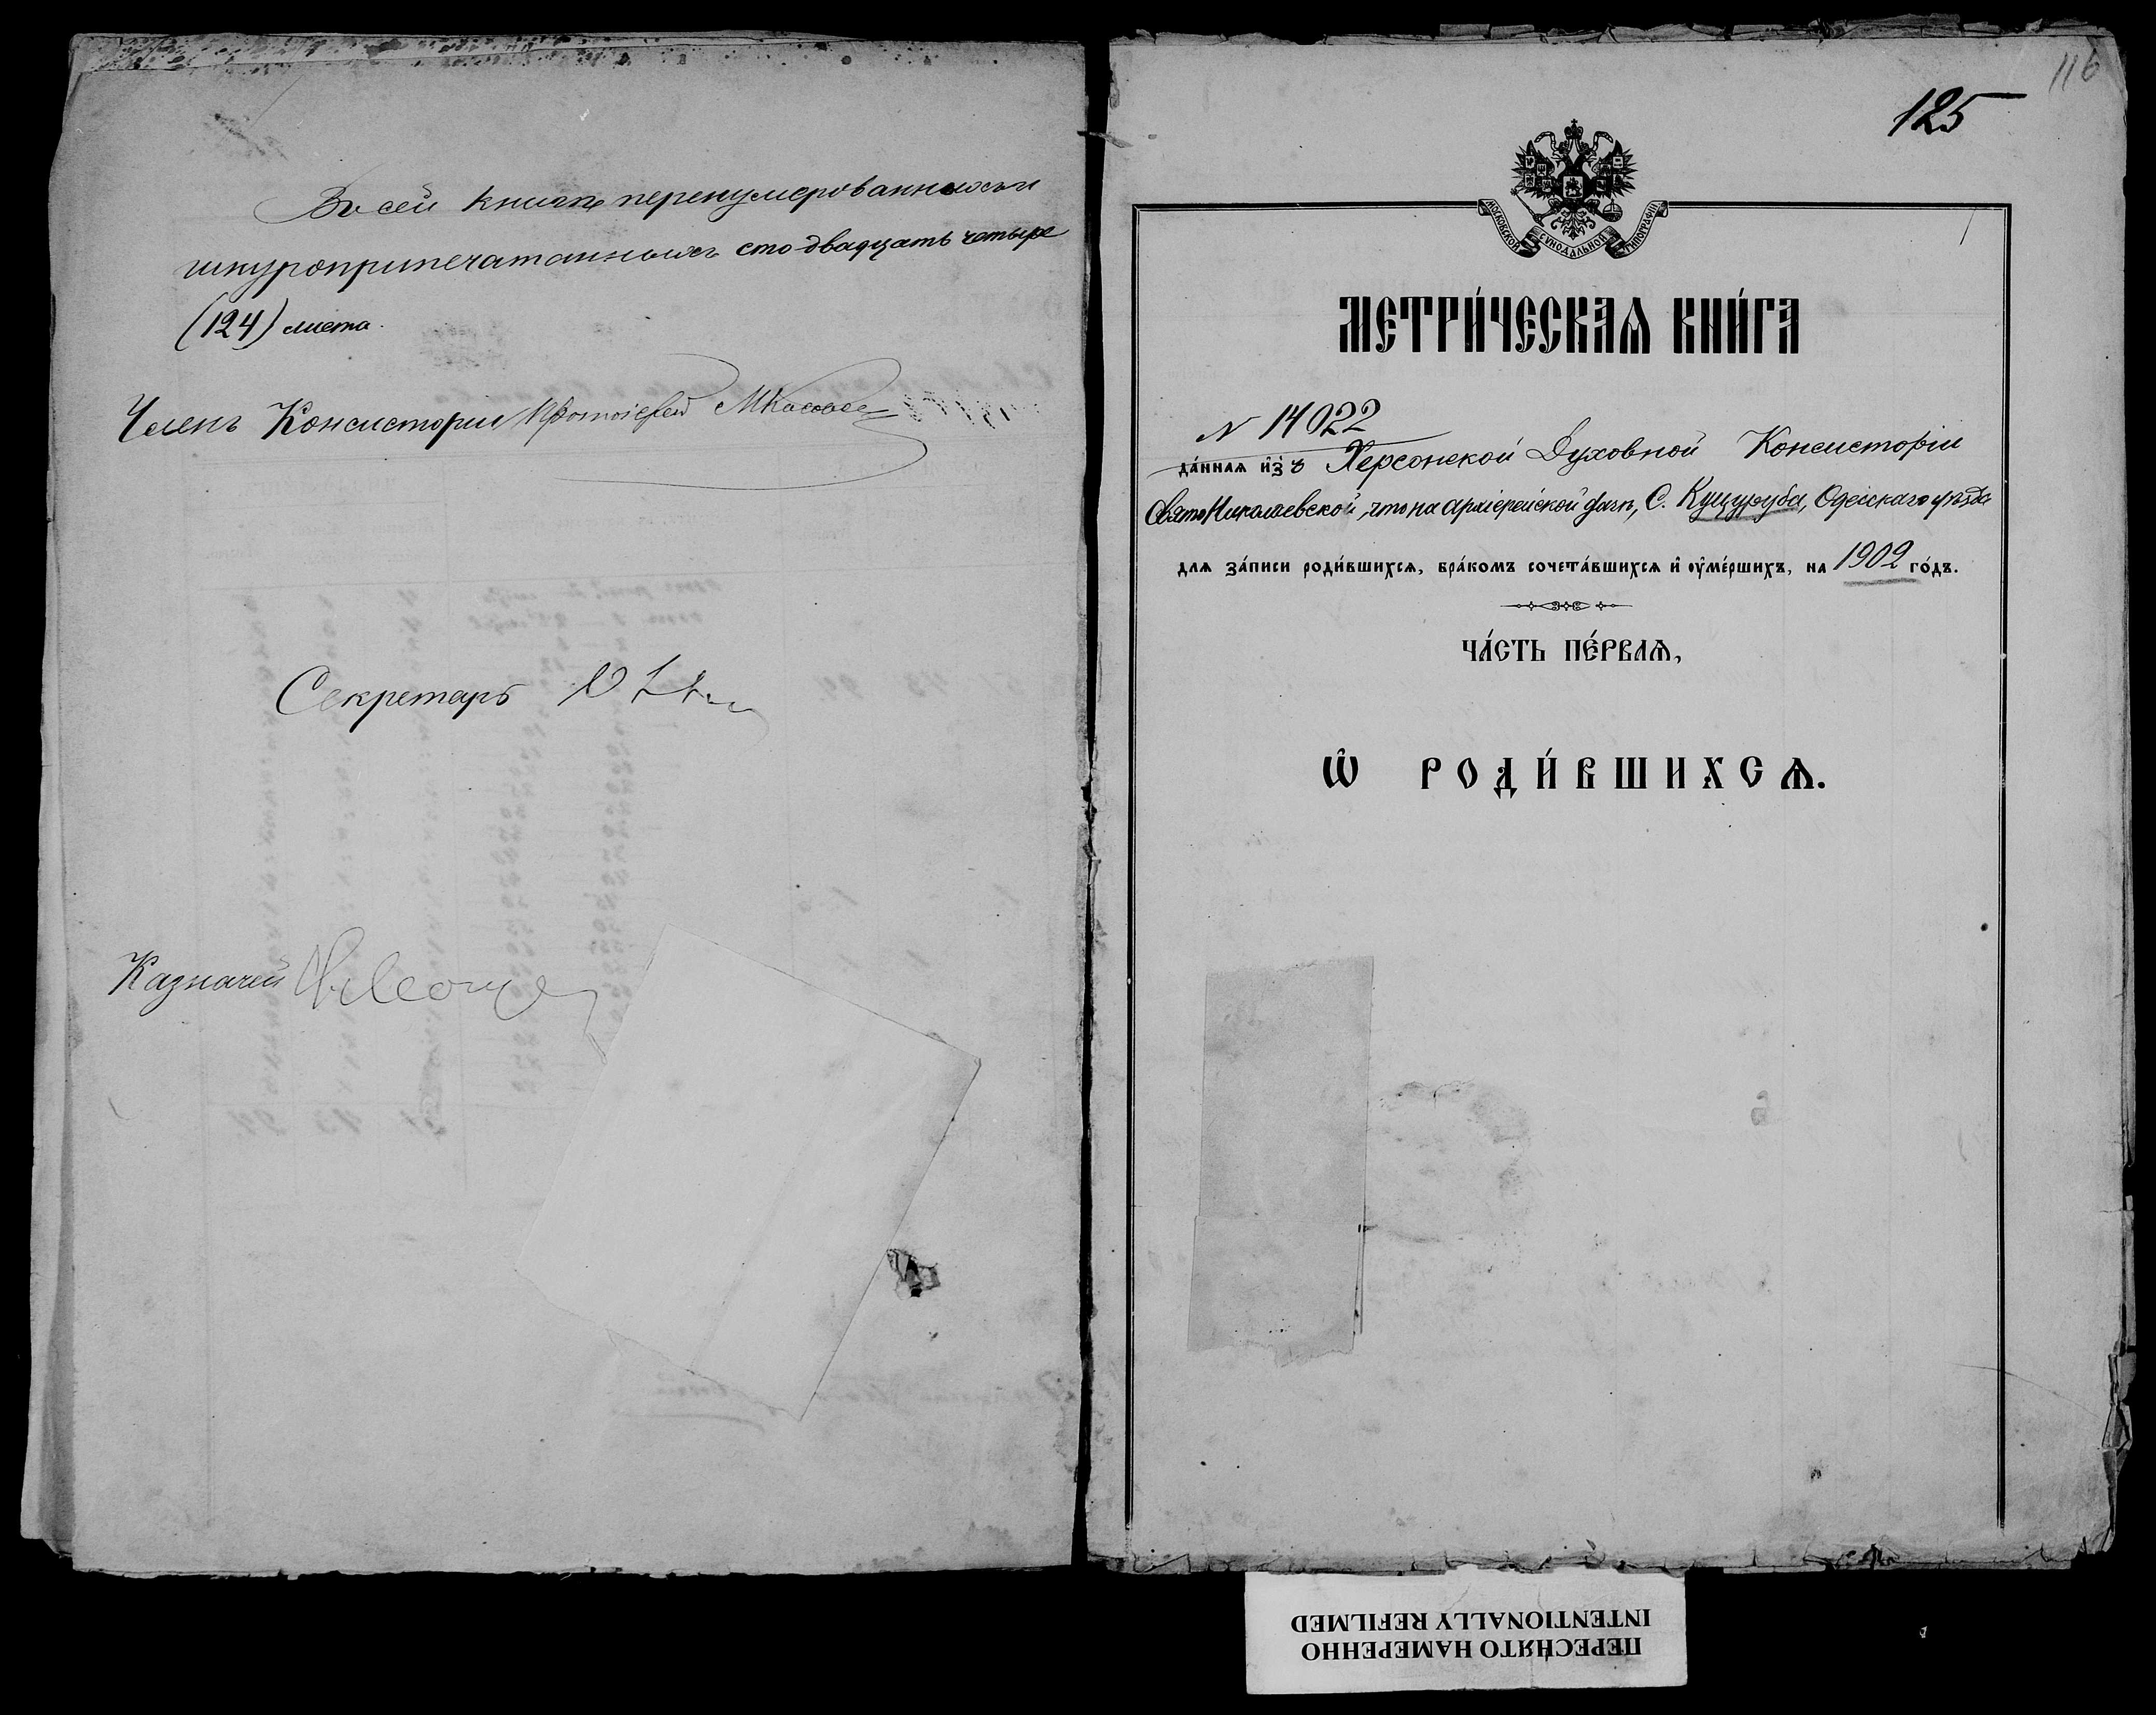 Въ сей книгѣ перенумерованныхъ и
шнуроприпечатанныхъ сто двадцать четыре
(124) листа.
Членъ Консисторіи Протоіерей
Секретарь
Казначей
116
125
МОСКОВСКОЙ СѴНОДАЛЬНОЙ ТИПОГРАФІИ
МЕТРИ́ЧЕСКАѦ КНИ́ГА
N 14022
да́ннаѧ и҆зъ Херсонской Духовной Консисторіи
Свято Николаевской, что на архіерейской дачѣ, С. Куцуруба, Одесскаго уѣзда
длѧ за́писи роди́вшихсѧ, бра́комъ сочета́вшихсѧ и҆ оу҆ме́ршихъ, на 1902 го́дъ.
ЧА́СТЬ ПЕ́РВАѦ,
Ѡ҆ РОДИ́ВШИХСѦ.
ПЕРЕСНЯТО НАМЕРЕННО
INTENTIONALLY REFILMED